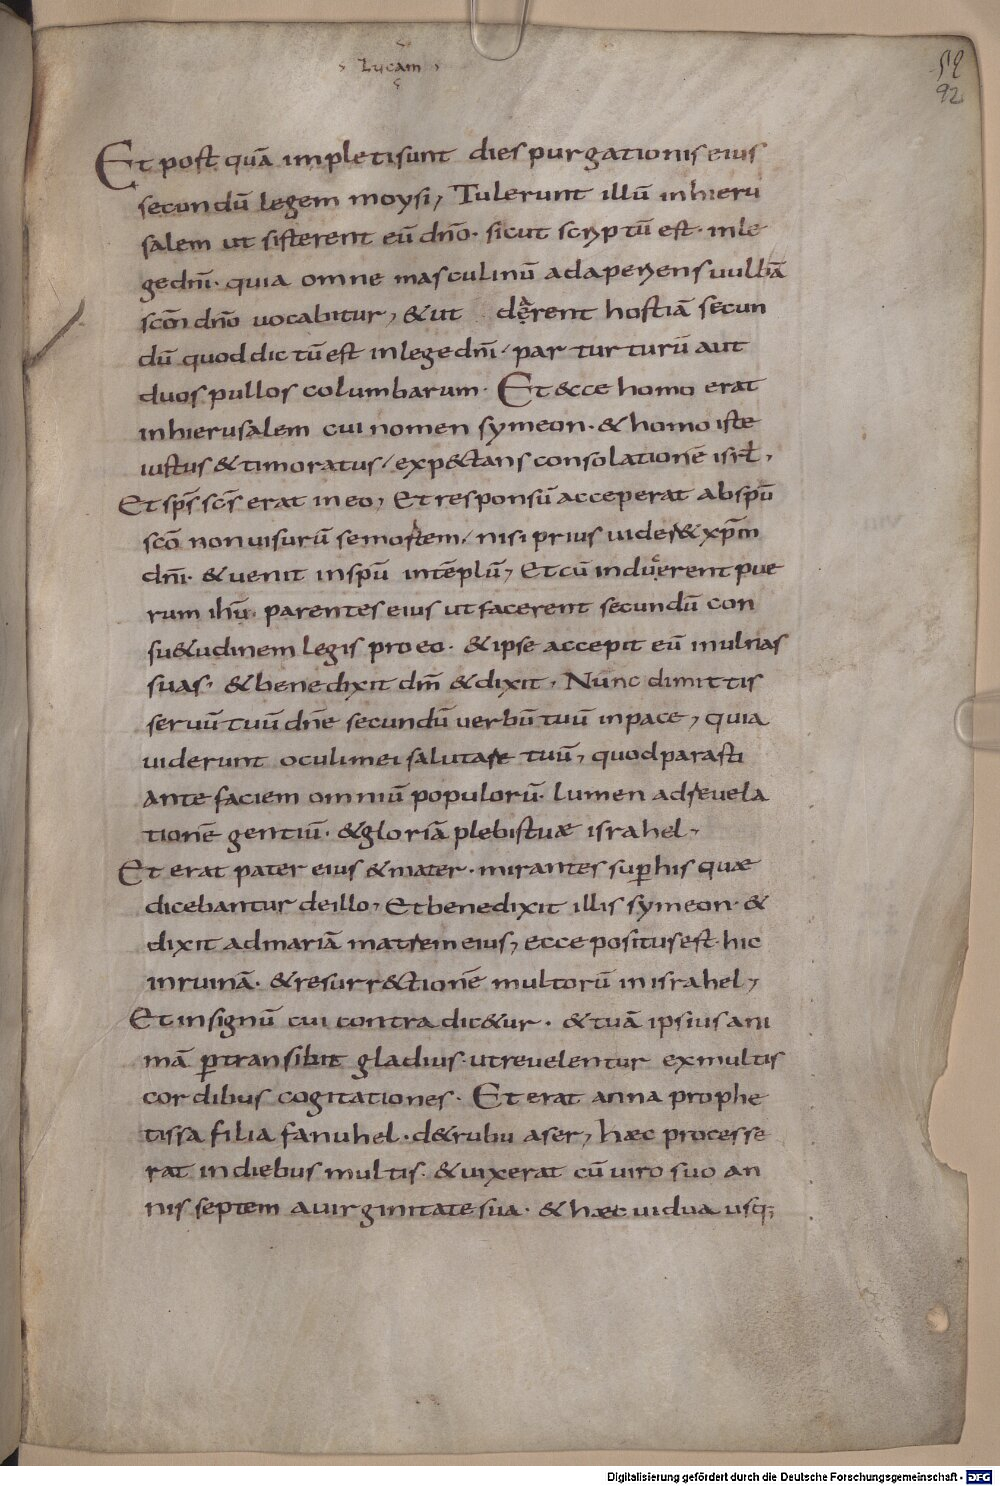 Lucam
52
92
Et post quā impleti sunt dies purgationis eius
secundū legem moysi, Tulerunt illū in hieru
salem ut sisterent eū dn̄o. sicut scryptū est. in le
ge dn̄i. quia omne masculinū adaperyens uulbā
scōm dn̄o uocabitur, & ut darent hostiā secun
dū quod dictū est in lege dn̄i, par turturū aut
duos pullos columbarum. Et ecce homo erat
in hierusalem cui nomen symeon. & homo iste
iustus & timoratus, exp&ctans consolationē isrł,
Et sp̄s sc̄s erat in eo, Et responsū acceperat ab spū
scō non uisurū se mortem, nisi prius uider& xp̄m
dn̄i. & uenit in spū in tēplū, Et cū inducerent pue
rum ih̄u parentes eius ut facerent secundū con
su&udinem legis pro eo. & ipse accepit eū in ulnas
suas. & benedixit dm̄ & dixit. Nunc dimittis
seruū tuū dn̄e secundū uerbū tuū in pace, quia
uiderunt oculi mei salutare tuū, quod parasti
ante faciem omniū populorū. lumen ad reuela
tionē gentiū. & gloriā plebis tuæ israhel,
Et erat pater eius & mater. mirantes sup̄ his quæ
dicebantur de illo, Et benedixit illis symeon. &
dixit ad mariā matrem eius, ecce positus est. hic
in ruinā. & resurr&ctionē multorū in israhel,
Et in signū cui contradic&ur. & tuā ipsius ani
mā p̄transibit gladius. ut reuelentur ex multis
cordibus cogitationes. Et erat anna prophe
tissa filia fanuhel. de& rubu aser, hæc processe
rat in diebus multis. & uixerat cū uiro suo an
nis septem a uirginitate sua. & hæc uidua usq;
Digitalisierung gefördert durch die Deutsche Forschungsgemeinschaft - DFG